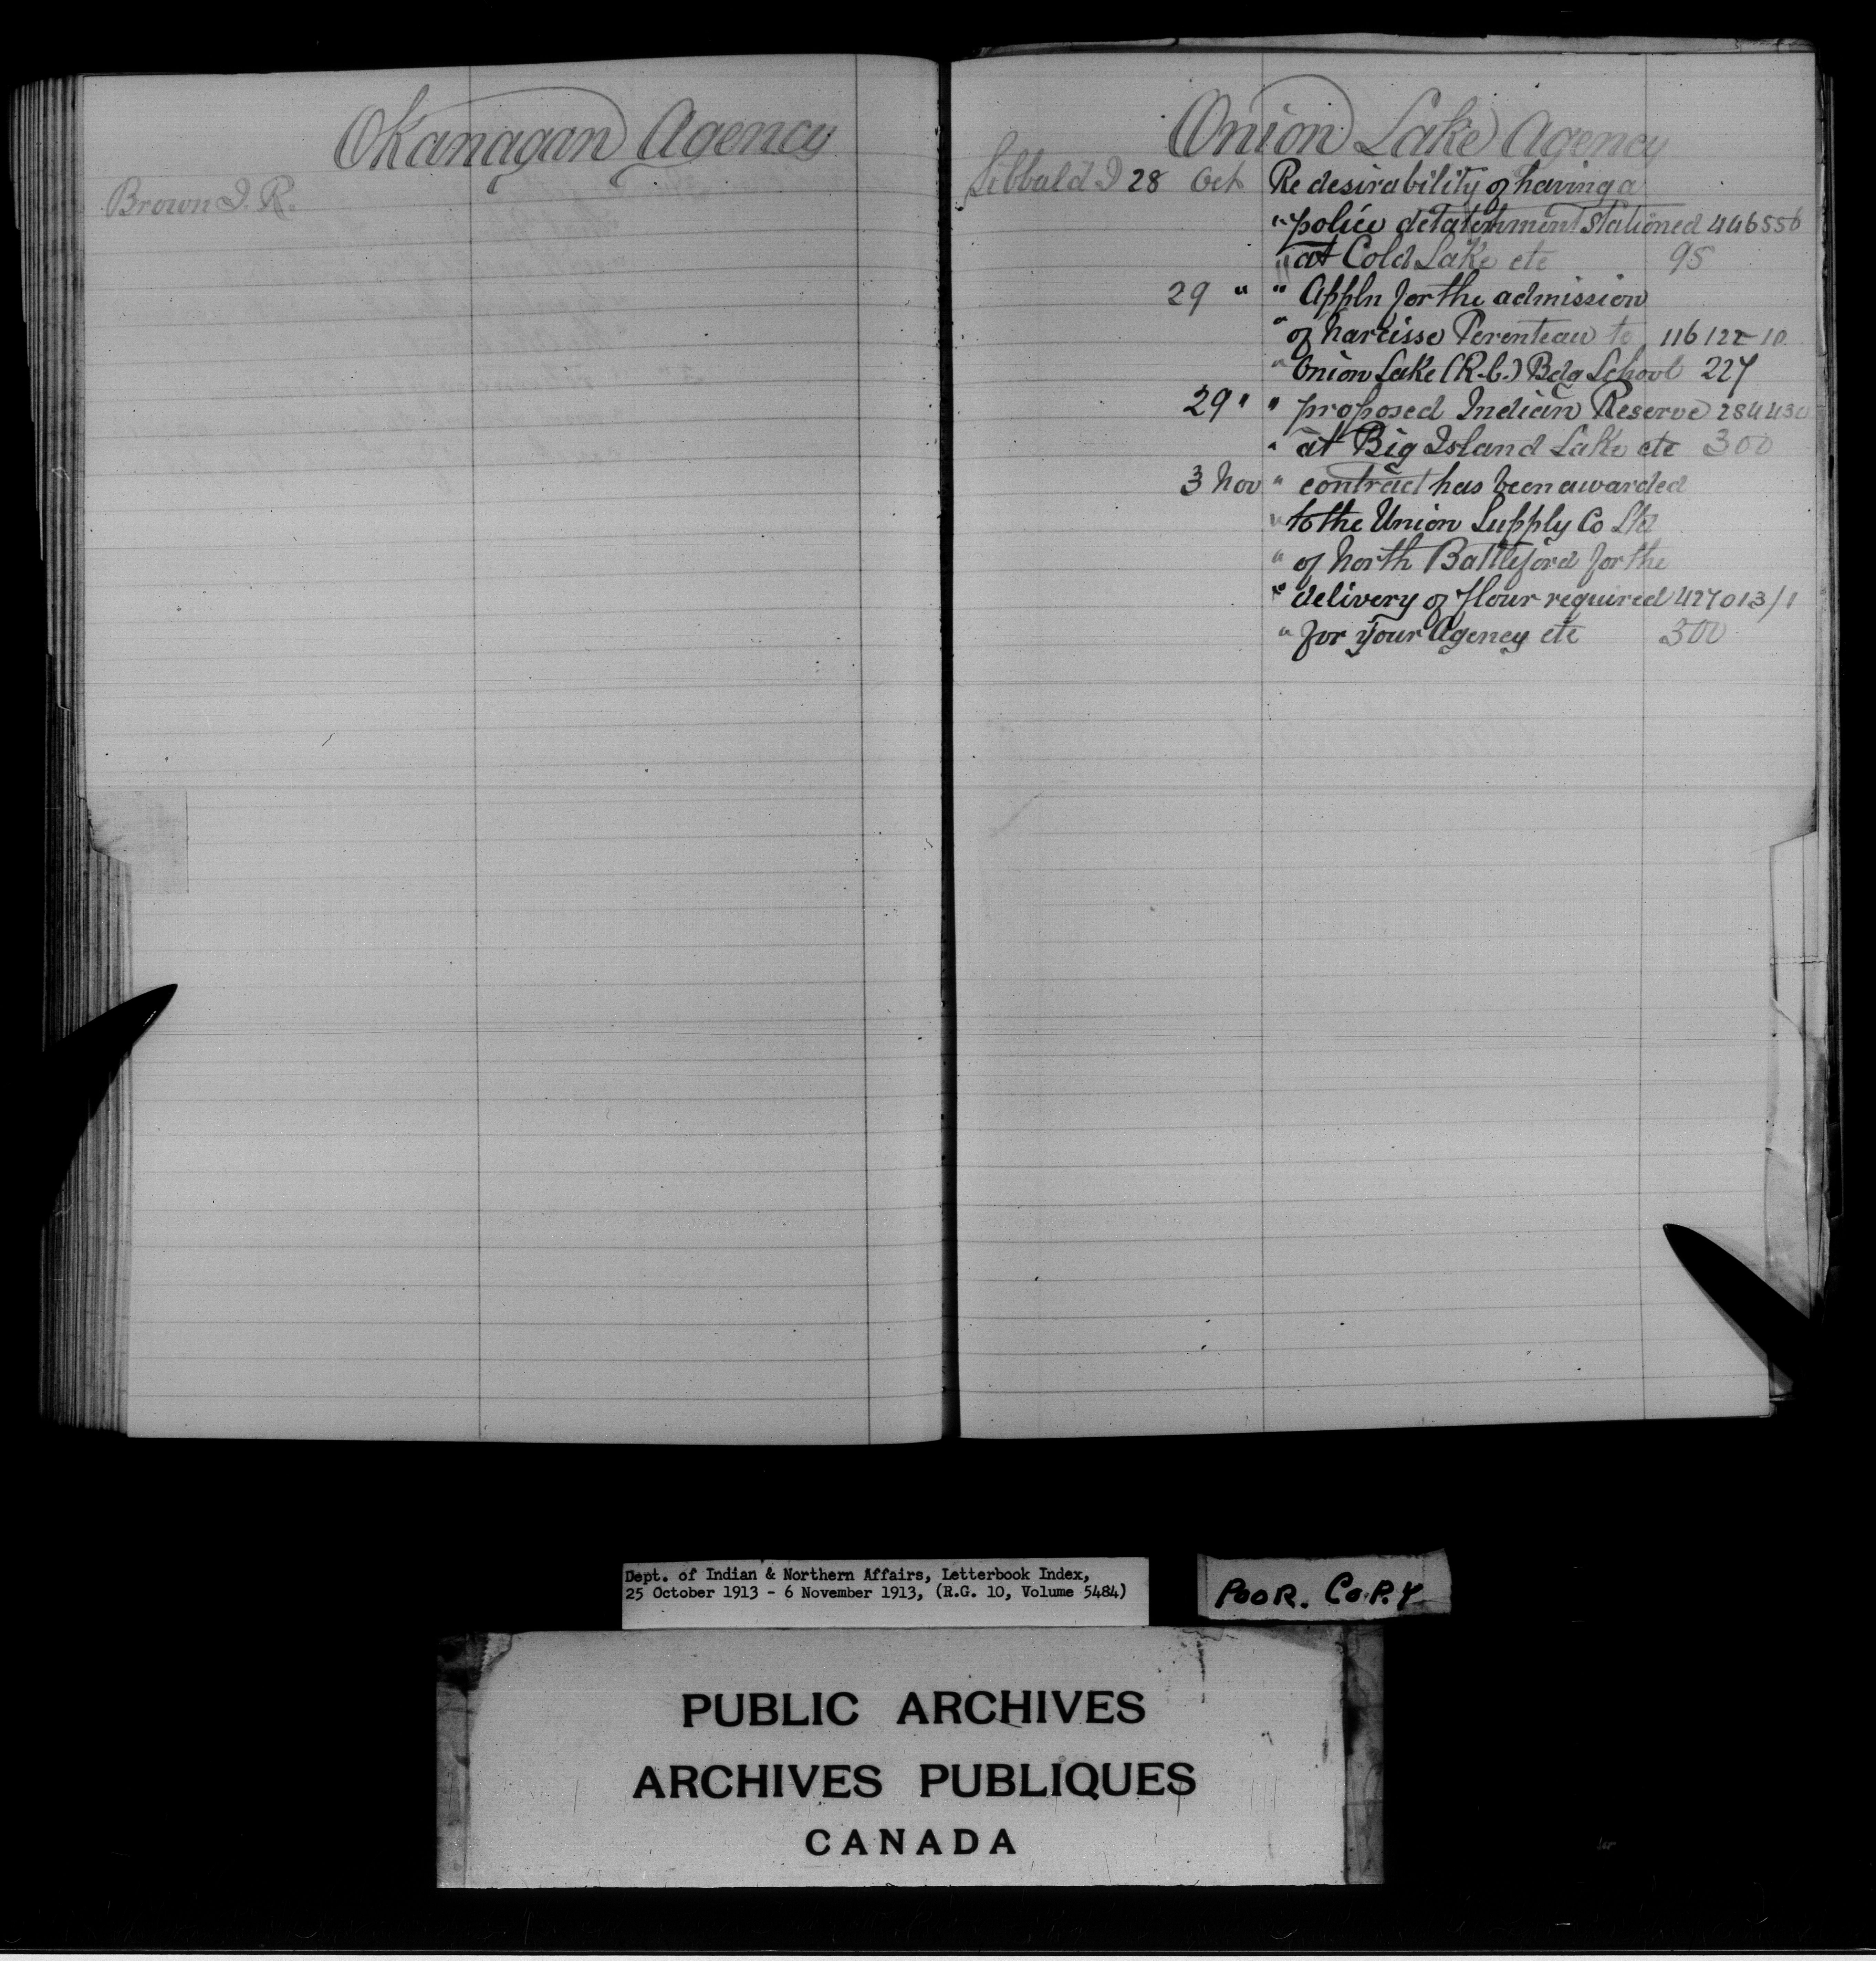 Okanagan Agency
Brown J. R.
Onion Lake Agency
Sibbald J 28 Oct Re desirability of having a
" police detatchment stationed 446556
" at Cold Lake etc 95
29 " " Appln for the admission
" of Narcisse Perenteau to 116122-10
" Onion Lake (R.C.) Bdg School 227
29 " " proposed Indian Reserve 284430
" at Big Island Lake etc 300
3 Nov " contract has been awarded
" to the Union Supply Co Ltd
" of North Battleford for the
" delivery of flour required 427013/1
" for your Agency etc 300
Dept. of Indian & Northern Affairs, Letterbook Index,
25 October 1913 - 6 November 1913, (R.G. 10, Volume 5484)
POOR. COPY
PUBLIC ARCHIVES
ARCHIVES PUBLIQUES
CANADA